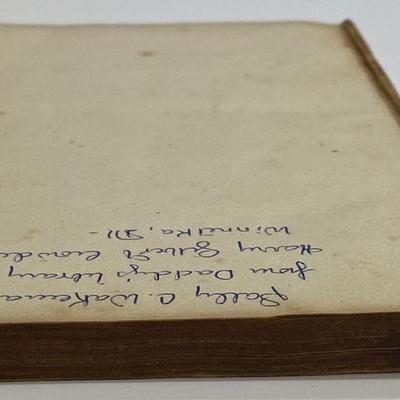 Sally C. Wakema
from Daddy's library
Harry Gilbert Crowde
Winnetka, Ill -